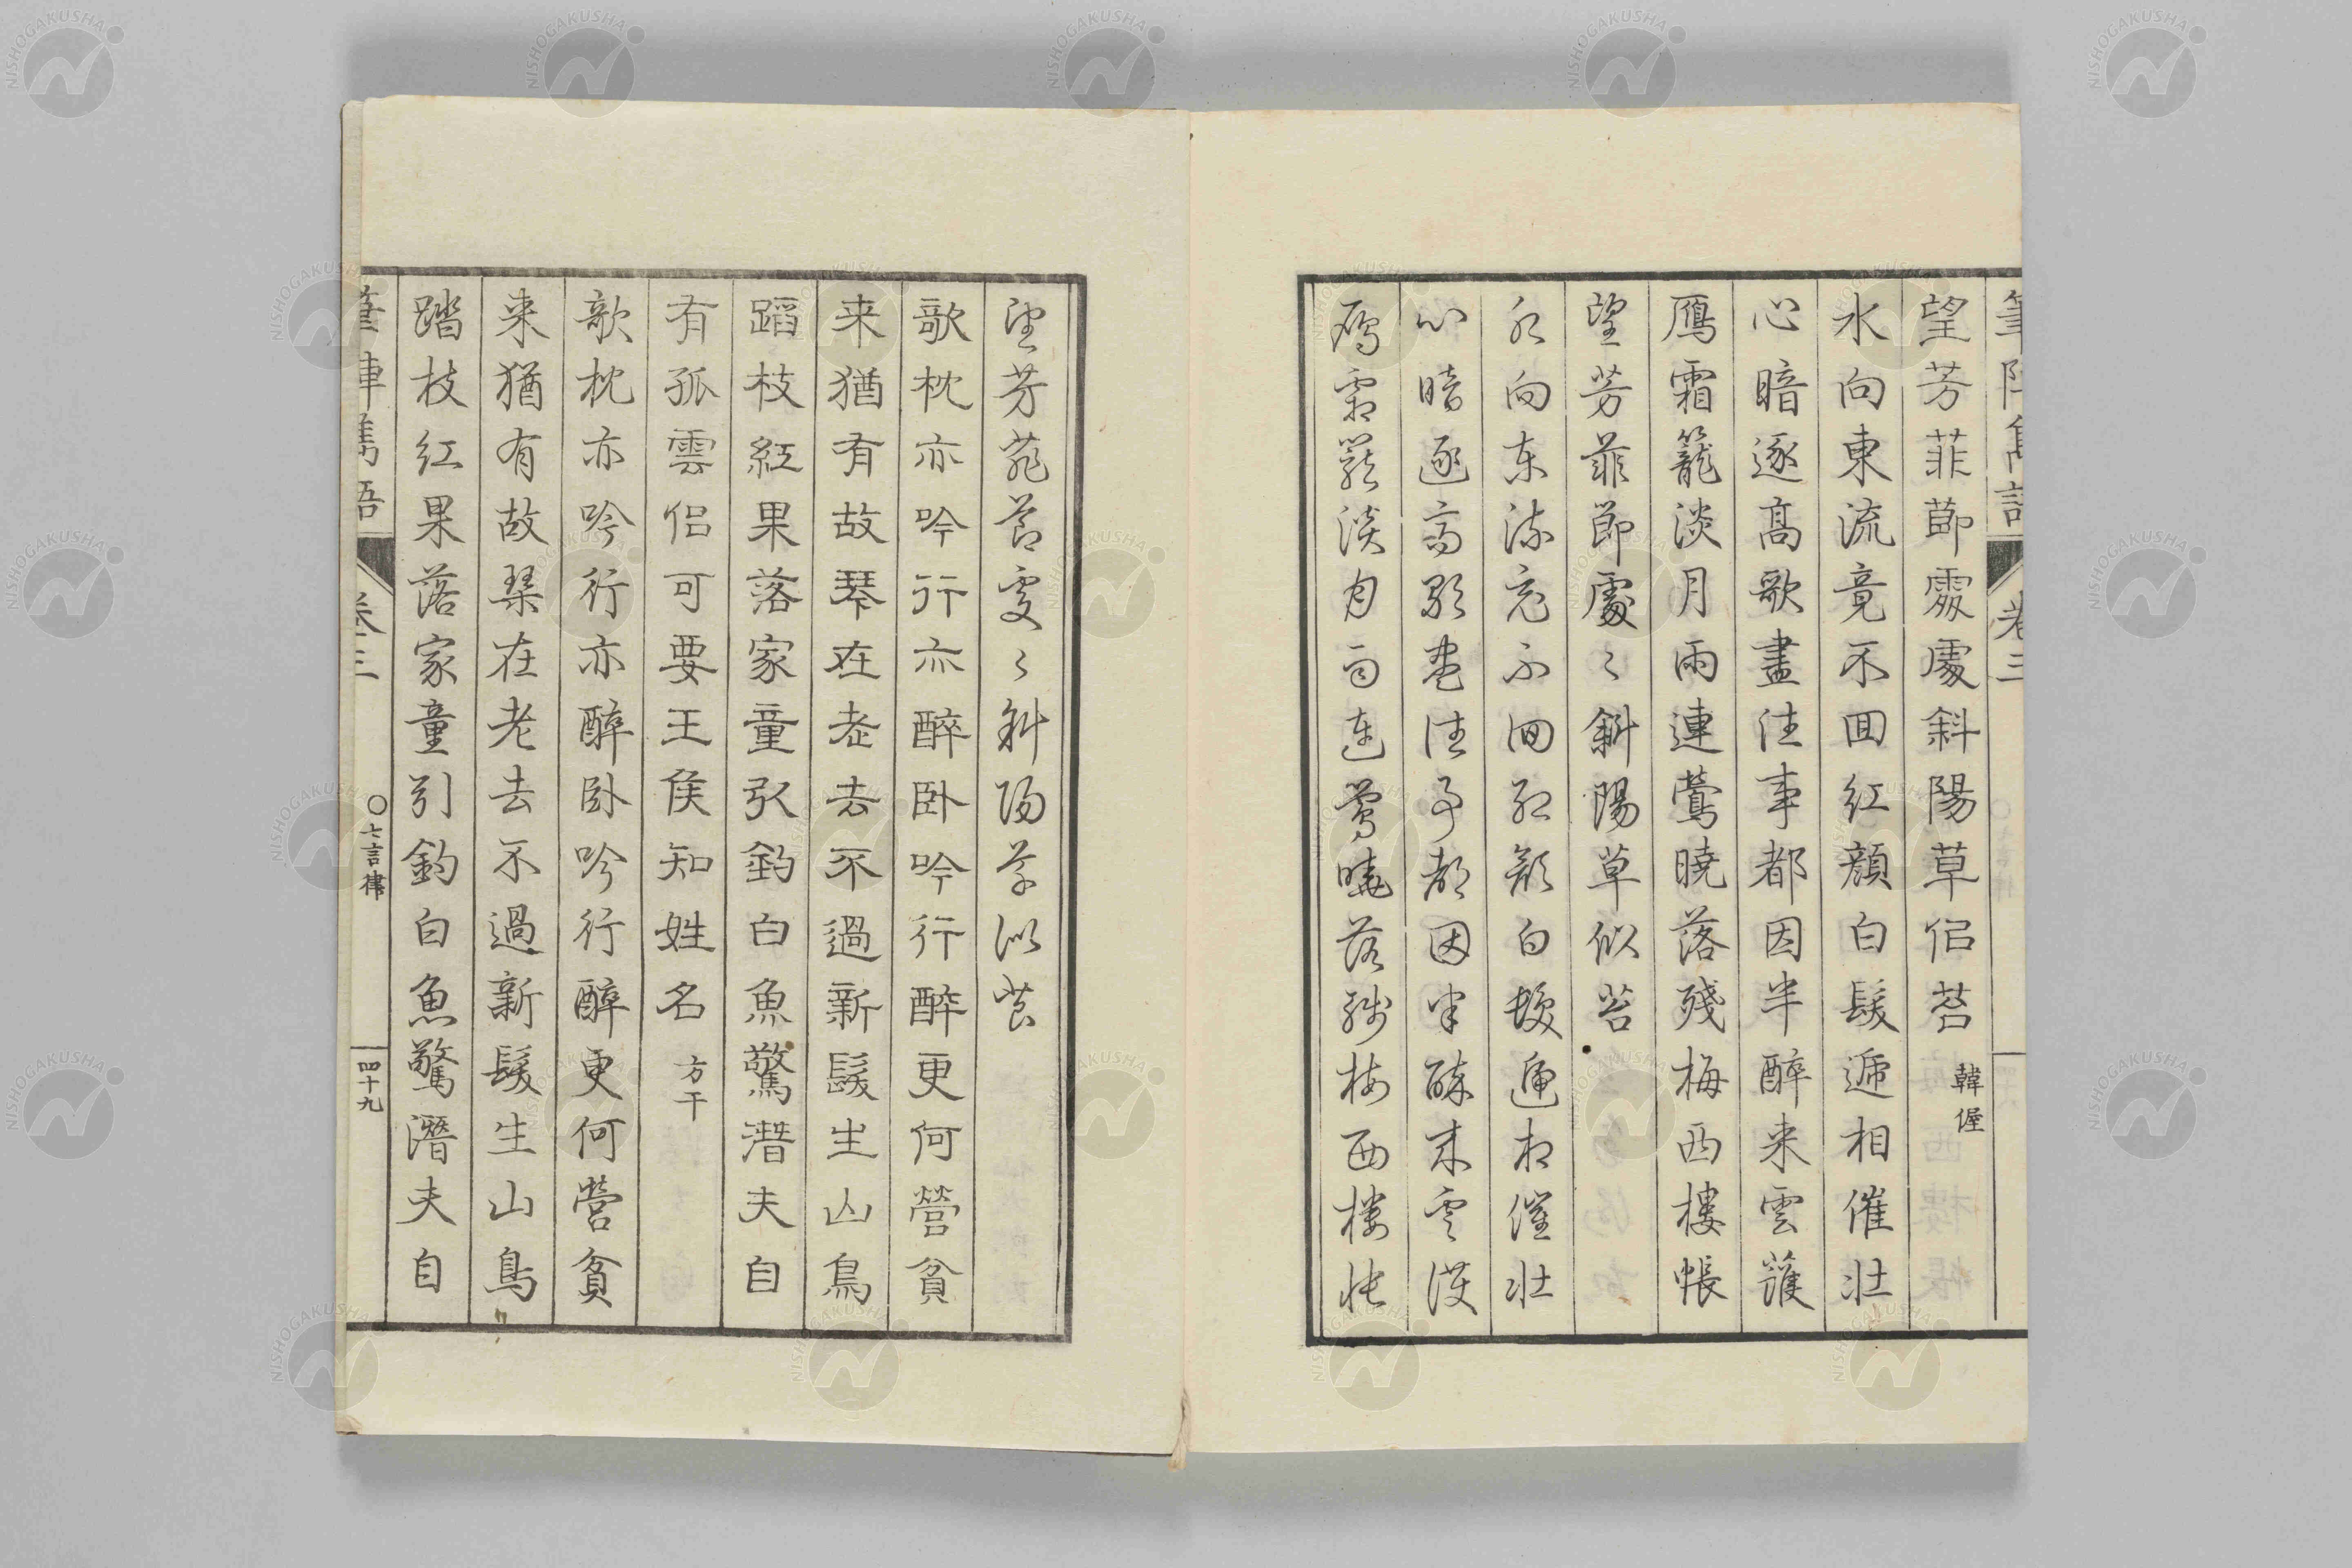 筆陣雋語 卷三
望芳菲節處處斜陽草佀苔 韓偓
水向東流竟不回紅顔白髮遞相催壯
心暗逐高歌盡往事都因半醉来雲護
鴈霜籠淡月雨連鶯曉落殘梅西樓悵
望芳菲節處〻斜陽草似苔
水向东流竟不回紅顔白髮遞相催壯
心暗逐高歌盡往事都因半醉来雲護
鴈霜籠淡月雨連鶯曉落殘梅西樓悵
望芳菲節處〻斜陽草似苔
欹枕亦吟行亦醉卧吟行醉更何營貧
来猶有故琴在老去不過新髮生山鳥
蹈枝紅果落家童引釣白魚驚潛夫自
有孤雲侶可要王侯知姓名 方干
欹枕亦吟行亦醉卧吟行醉更何營貧
来猶有故琴在老去不過新髮生山鳥
踏枝紅果落家童引釣白魚驚潛夫自
筆陣雋語 卷三 ○七言律 四十九